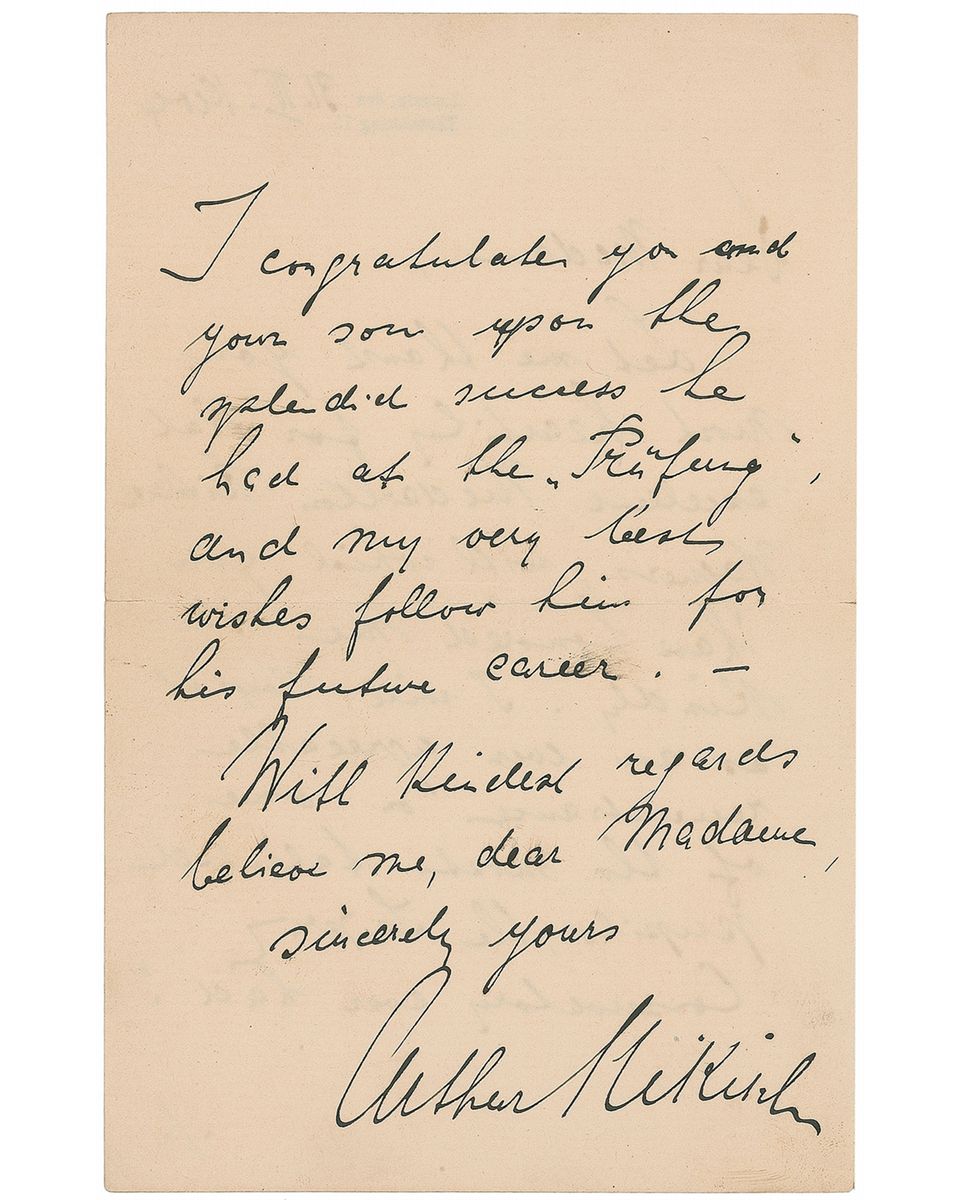 I congratulate you and
your son upon the
splendid success he
had at the „Prüfung",
and my very best
wishes follow him for
his future career. —
With kindest regards
believe me, dear Madame,
sincerely yours
Arthur Nikisch